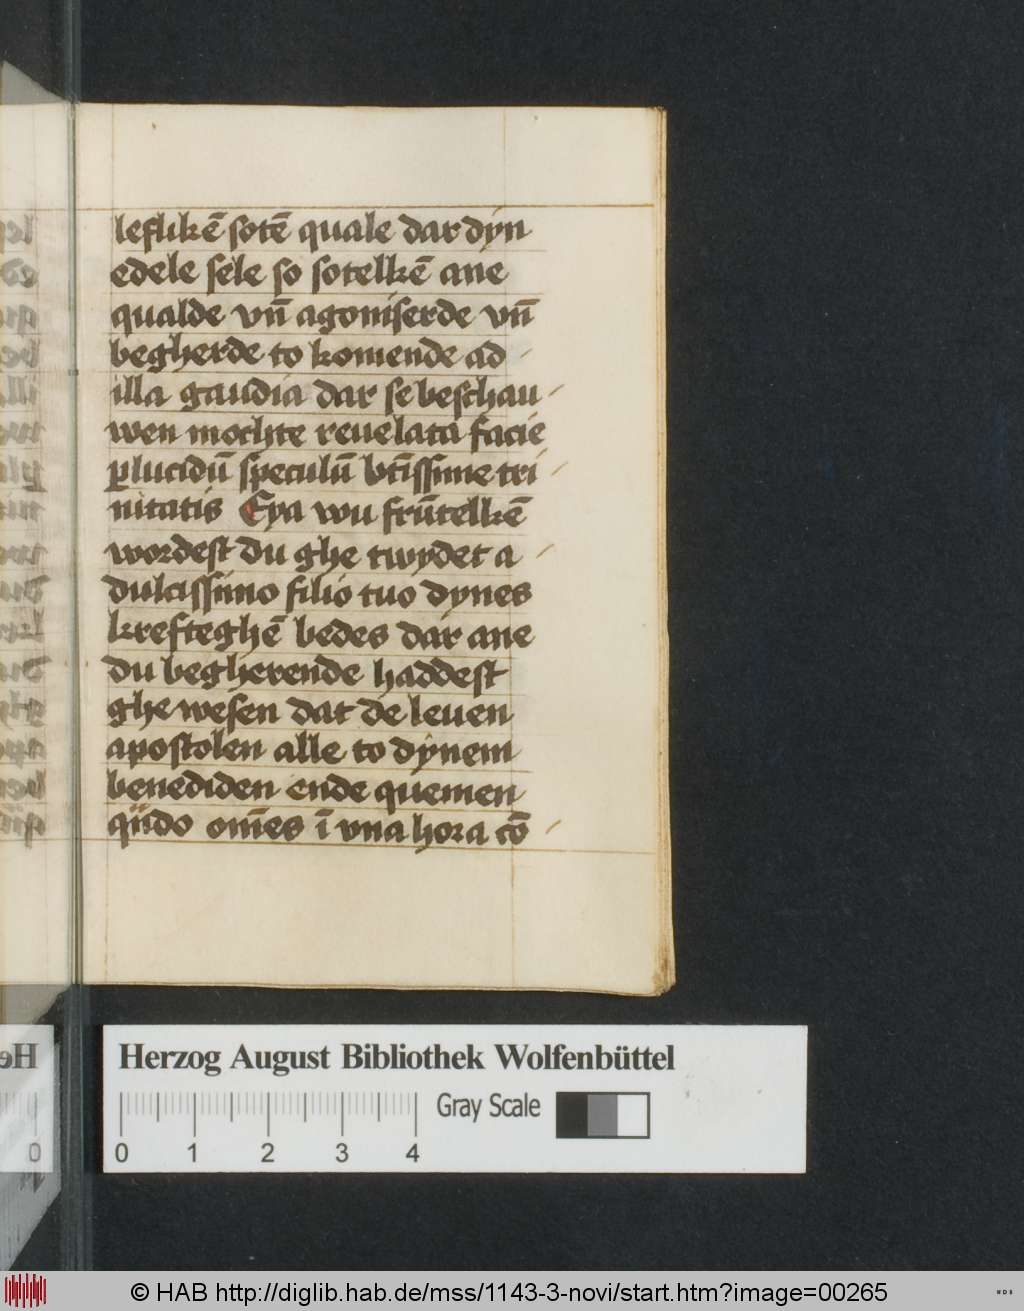 leflikē sotē quale dar dyn
edele sele so sotelkē ane
qualde vn̄ agoniserde vn̄
begherde to komende ad
illa gaudia dar se beschau
wen mochte reuelata facie
ꝑlucidū speculū btīssime tri
nitatis Eya wu frūtelkē
wordest du ghe twydet a
dulcissimo filio tuo dynes
krefteghē bedes dar ane
du begherende haddest
ghe wesen dat de leuen
apostolen alle to dynem
benediden ende quemen
qn̄do om̄es ī vna hora cō
Herzog August Bibliothek Wolfenbüttel
Gray Scale
0 1 2 3 4
© HAB http://diglib.hab.de/mss/1143-3-novi/start.htm?image=00265